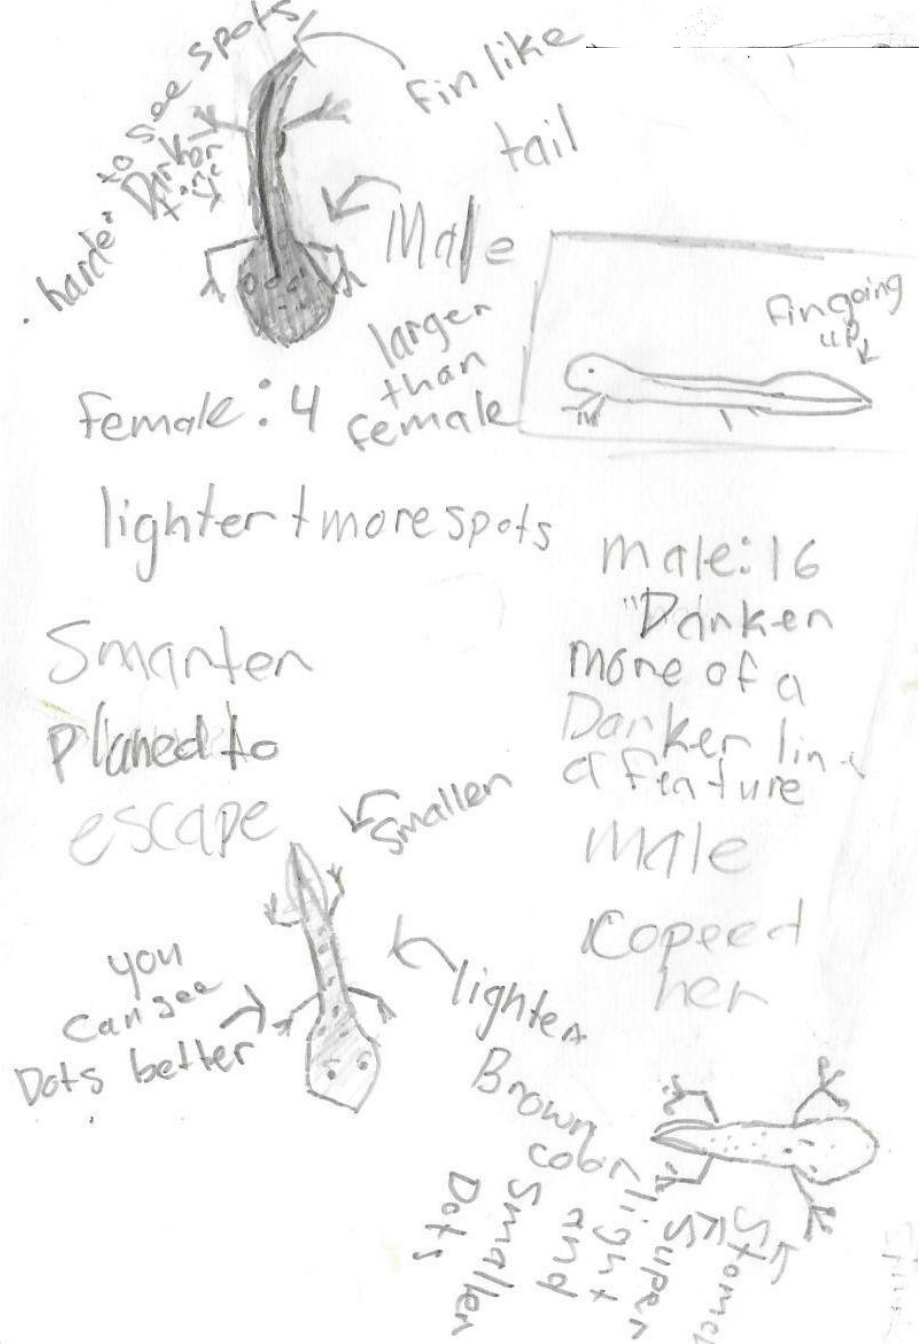 harder to see spots
Darker
fin like
tail
Male
larger
than
female
fin going
up
female: 4
lighter + more spots
male: 16
"Darker
more of a
Darker lin
a feature
Smarter
planed to
escape
male
copeed
her
smaller
you
can see
Dots better
lighter
Brown
color
Stomec
is
super
light
and
smaller
Dots